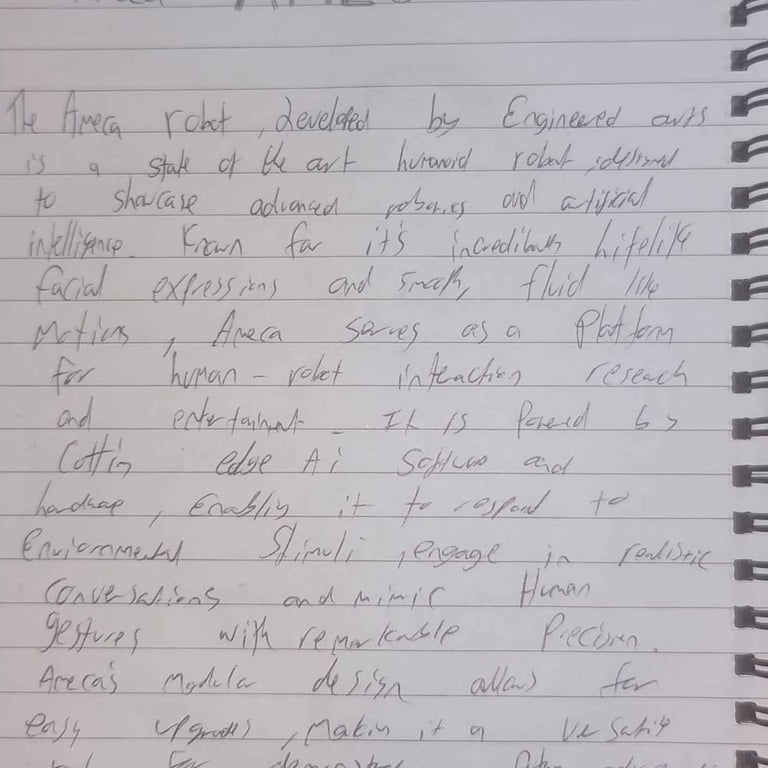 The Ameca robot, developed by Engineered arts
is a state of the art humanoid robot, designed
to showcase advanced robotics and artificial
intelligence. Known for it's incredibly lifelike
facial expressions and smooth, fluid like
motions, Ameca serves as a Platform
for human-robot interaction reseach
and entertainment. It is Powered by
Cuttin edge Ai Software and
hardware, Enabling it to respond to
Enviornmental Stimuli, engage in realistic
Conversations and mimic Human
gestures with remarkable Precision.
Ameca's modular design allows for
easy upgrades, making it a versatile
for